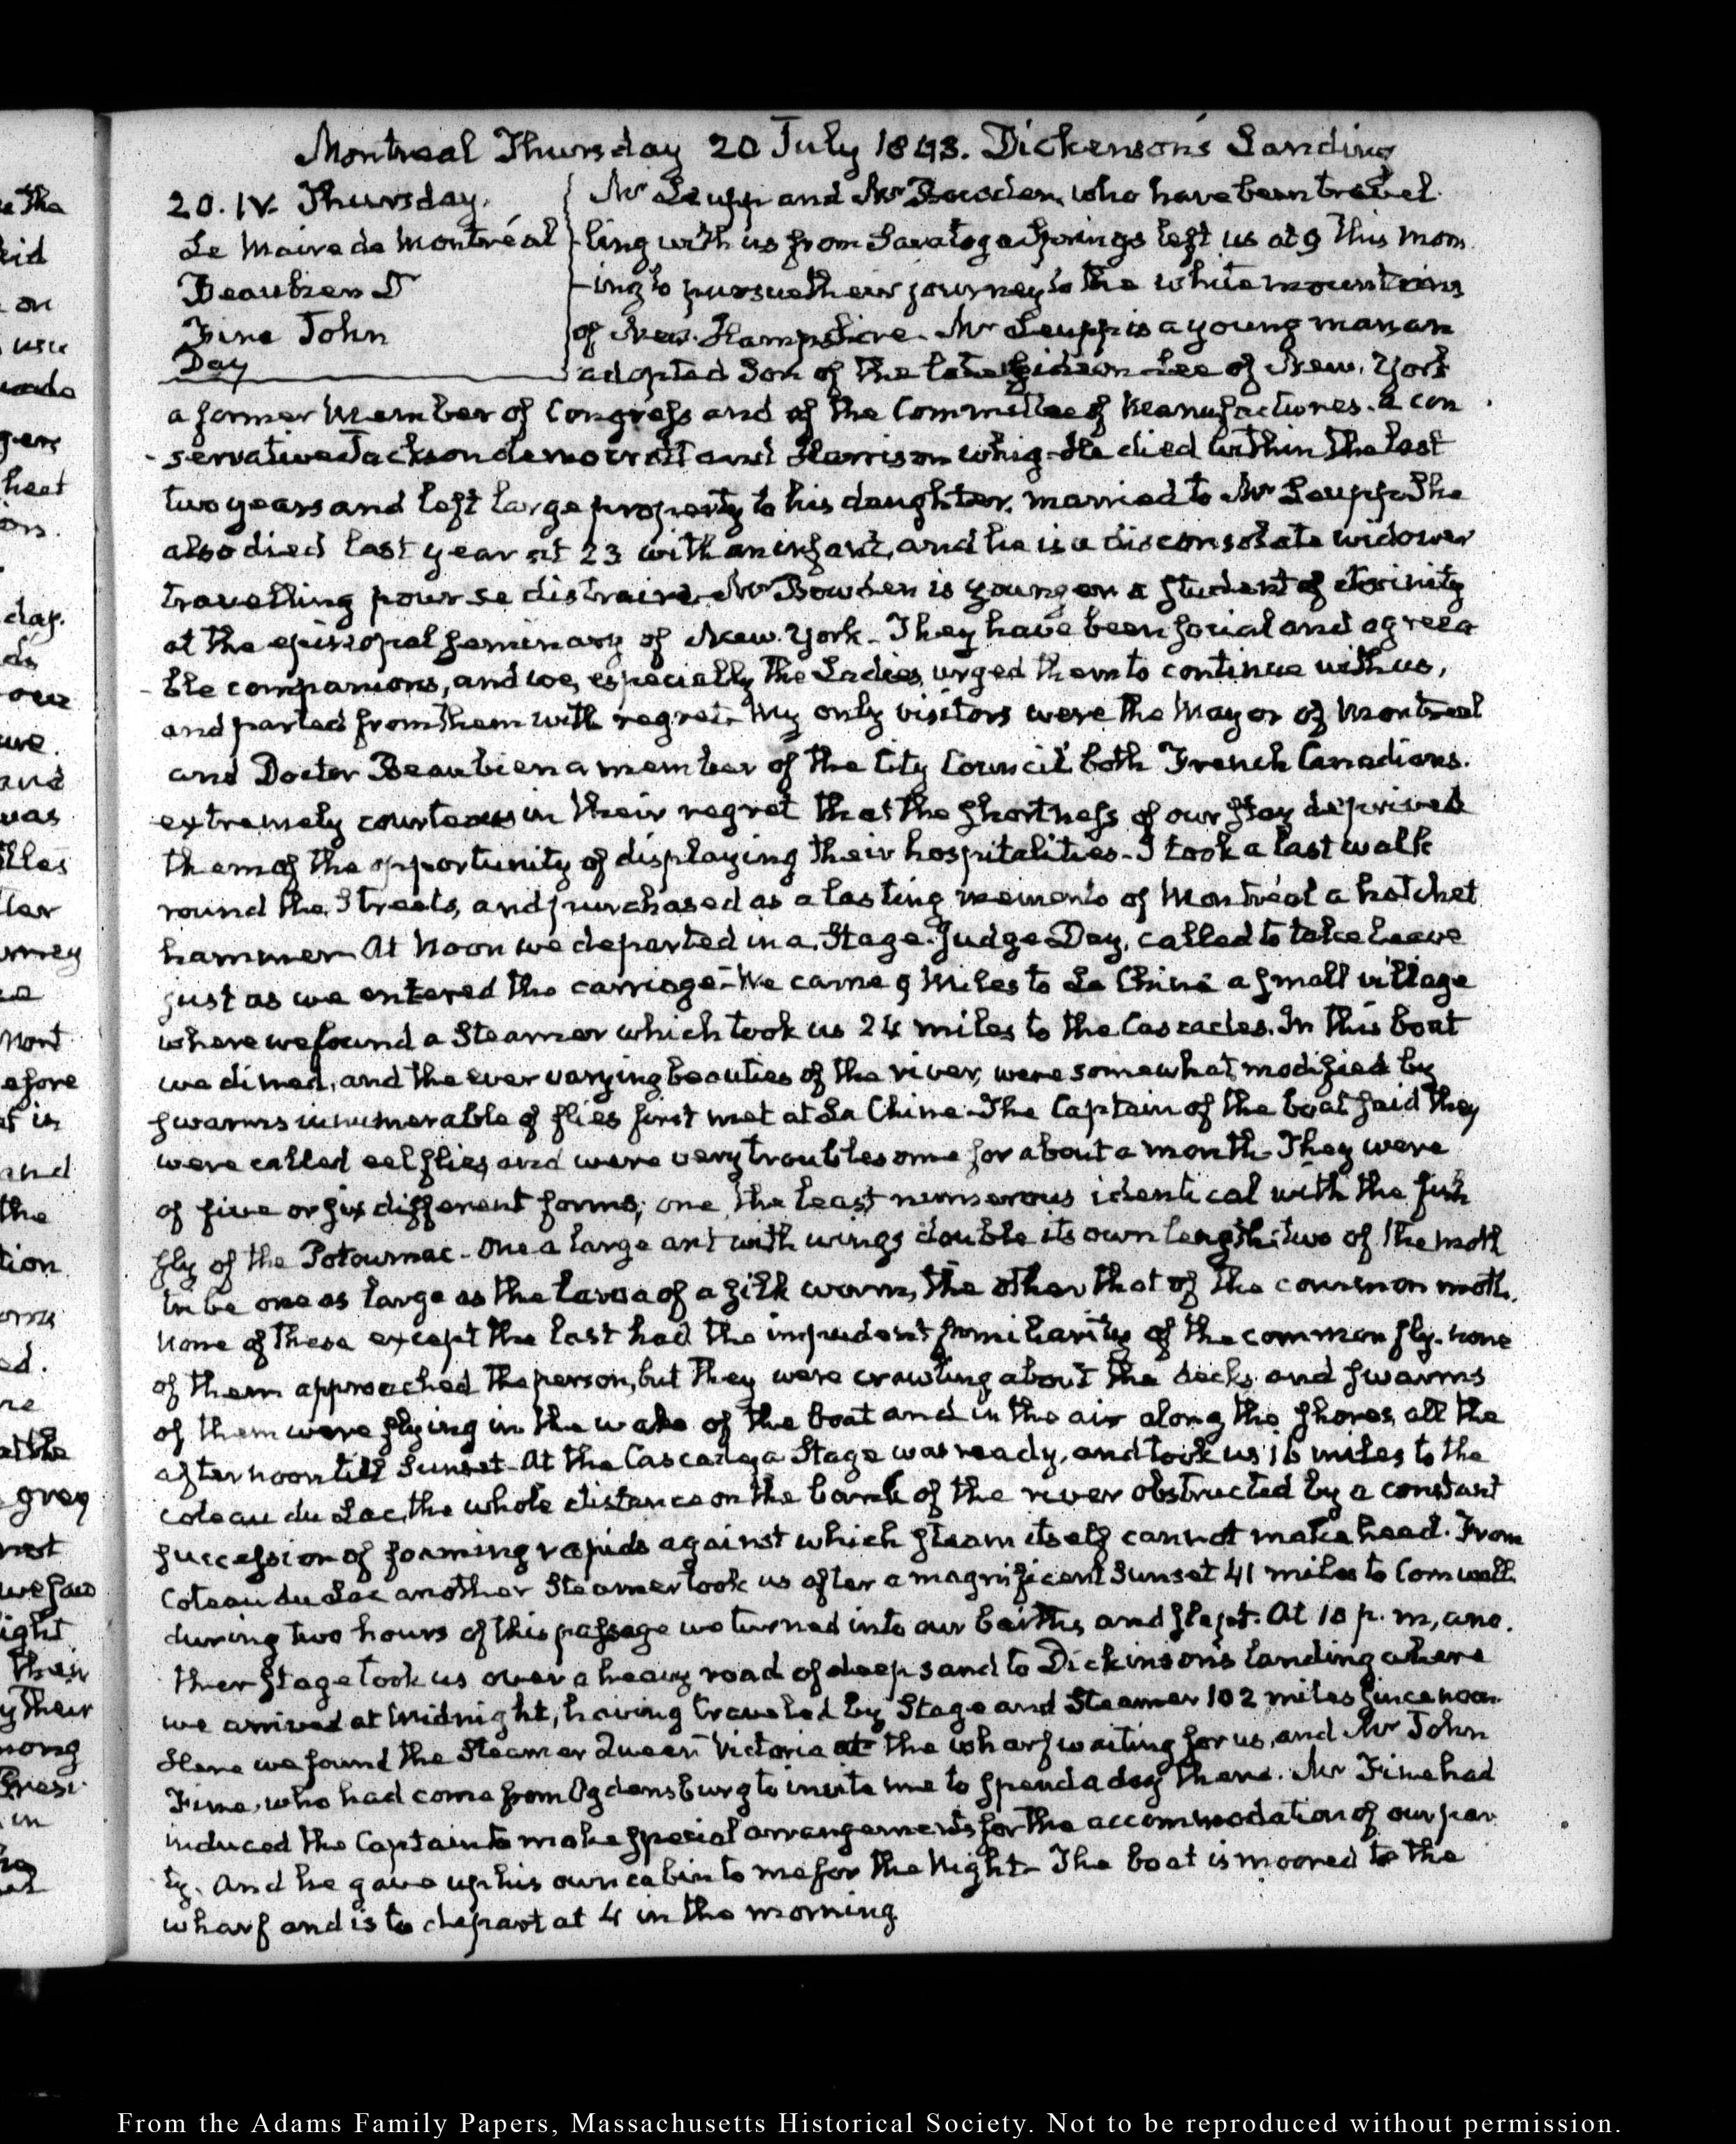 Montreal Thursday 20 July 1843. Dickenson's Landing
20. IV. Thursday.
Le Maire de Montréal
Beaubien D
Fine John
Day
Mr Leupp and Mr Bowden, who have been travel
ling with us from Saratoga Springs left us at 9 this morn
ing to pursue their journey to the white mountains
of New-Hampshire. Mr Leupp is a young man an
adopted Son of the late Gideon Lee of New-York
a former Member of Congress and of the Committee of Manufactures. a con
servative Jackson democrat and Harrison whig. He died within the last
two years and left large property to his daughter, married to Mr Leupp. She
also died last year at 23 with an infant, and he is a disconsolate widower
travelling pour se distraire. Mr Bowden is younger a student of divinity
at the episcopal seminary of New-York. They have been social and agreea
ble companions, and we, especially the Ladies, urged them to continue with us,
and parted from them with regret. My only visitors were the Mayor of Montreal
and Doctor Beaubien a member of the City Council both French Canadians.
extremely courteous in their regret that the shortness of our stay deprived
them of the opportunity of displaying their hospitalities. I took a last walk
round the Streets, and purchased as a lasting memento of Montreal a hatchet
hammer. At Noon we departed in a Stage. Judge Day, called to take leave
just as we entered the carriage. We came 9 Miles to La Chine a small village
where we found a Steamer which took us 24 miles to the Cascades. In this boat
we dined, and the ever varying beauties of the river, were somewhat modified by
swarms innumerable of flies first met at La Chine. The Captain of the boat said they
were called eel flies, and were very troublesome for about a month. They were
of five or six different forms; one, the least numerous identical with the fish
fly of the Potowmac. One a large ant with wings double its own length; two of the moth
tribe one as large as the larva of a silk worm, the other that of the common moth.
None of these except the last had the impudent familiarity of the common fly. none
of them approached the person, but they were crawling about the decks and swarms
of them were flying in the wake of the boat and in the air along the shores, all the
afternoon till Sunset. At the Cascades a Stage was ready, and took us 16 miles to the
coteau du Lac, the whole distance on the bank of the river obstructed by a constant
succession of foaming rapids against which steam itself cannot make head. From
Coteau du Lac another Steamer took us after a magnificent Sunset 41 miles to Cornwall.
during two hours of this passage we turned into our births, and slept. At 10 p. m, ano.
ther Stage took us over a heavy road of deep sand to Dickinson's landing where
we arrived at Midnight, having traveled by Stage and Steamer 102 miles since noon.
Here we found the Steamer Queen Victoria at the wharf waiting for us, and Mr John
Fine, who had come from Ogdensburg to invite me to spend a day there. Mr Fine had
induced the Captain to make special arrangements for the accommodation of our par
ty. And he gave up his own cabin to me for the Night. The boat is moored to the
wharf and is to depart at 4 in the morning
From the Adams Family Papers, Massachusetts Historical Society. Not to be reproduced without permission.